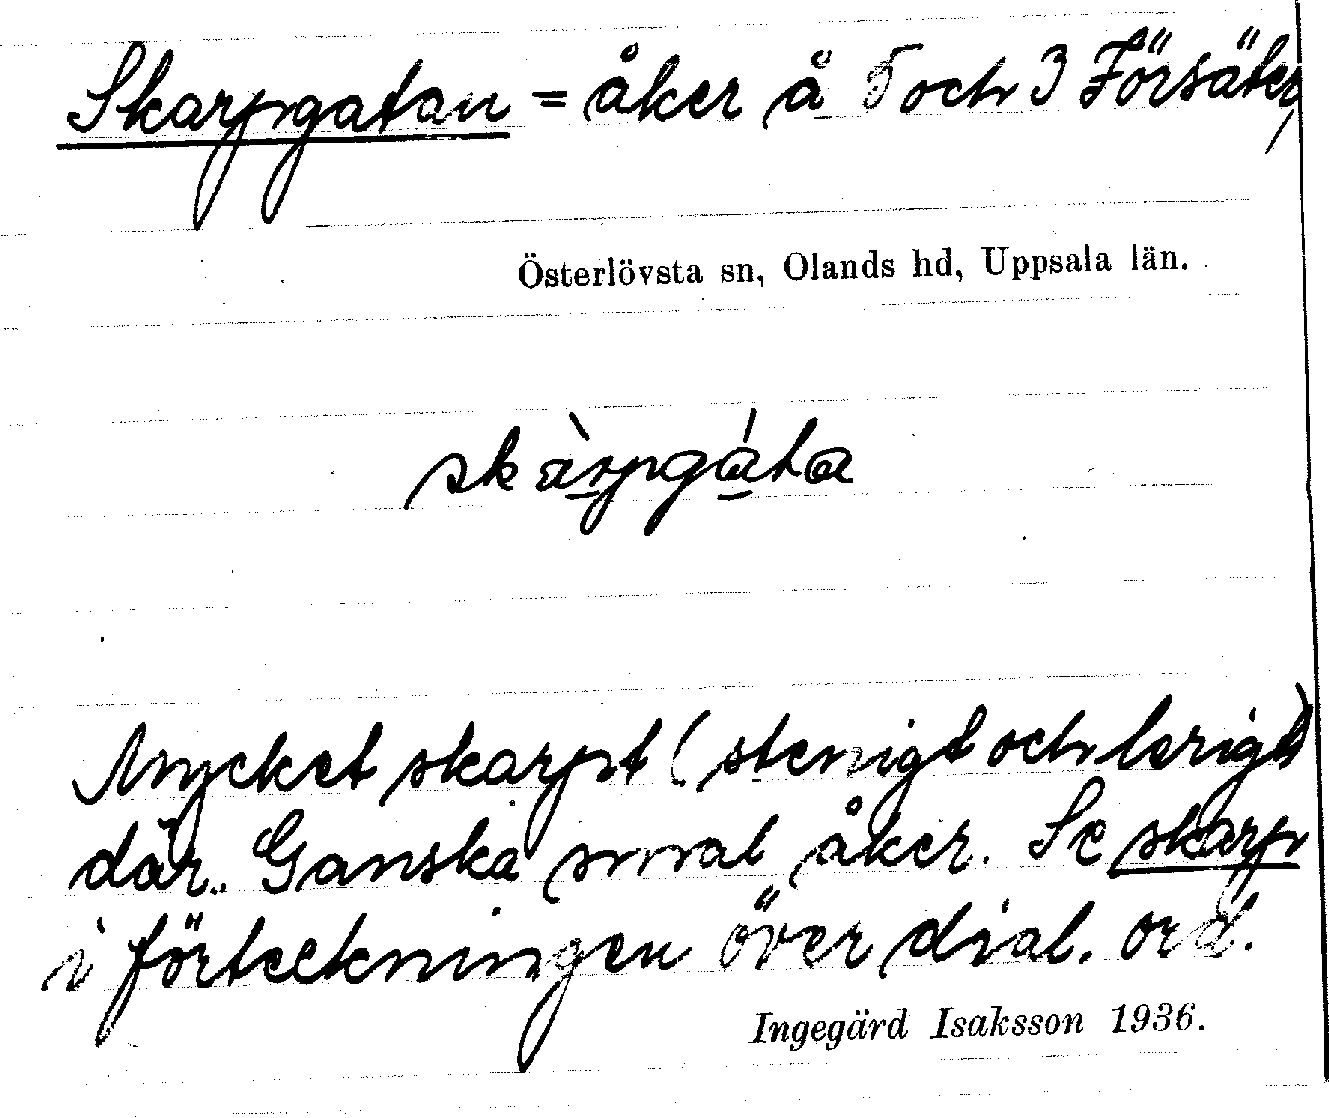 Skarpgatan = åker å 5 och 3 Försäter,
Österlövsta sn, Olands hd, Uppsala län.
skàrpgáta
Mycket skarpt (stenigt och lerigt)
där. Ganska smal åker. Se skarp
i förteckningen över dial. ord.
Ingegärd Isaksson 1936.